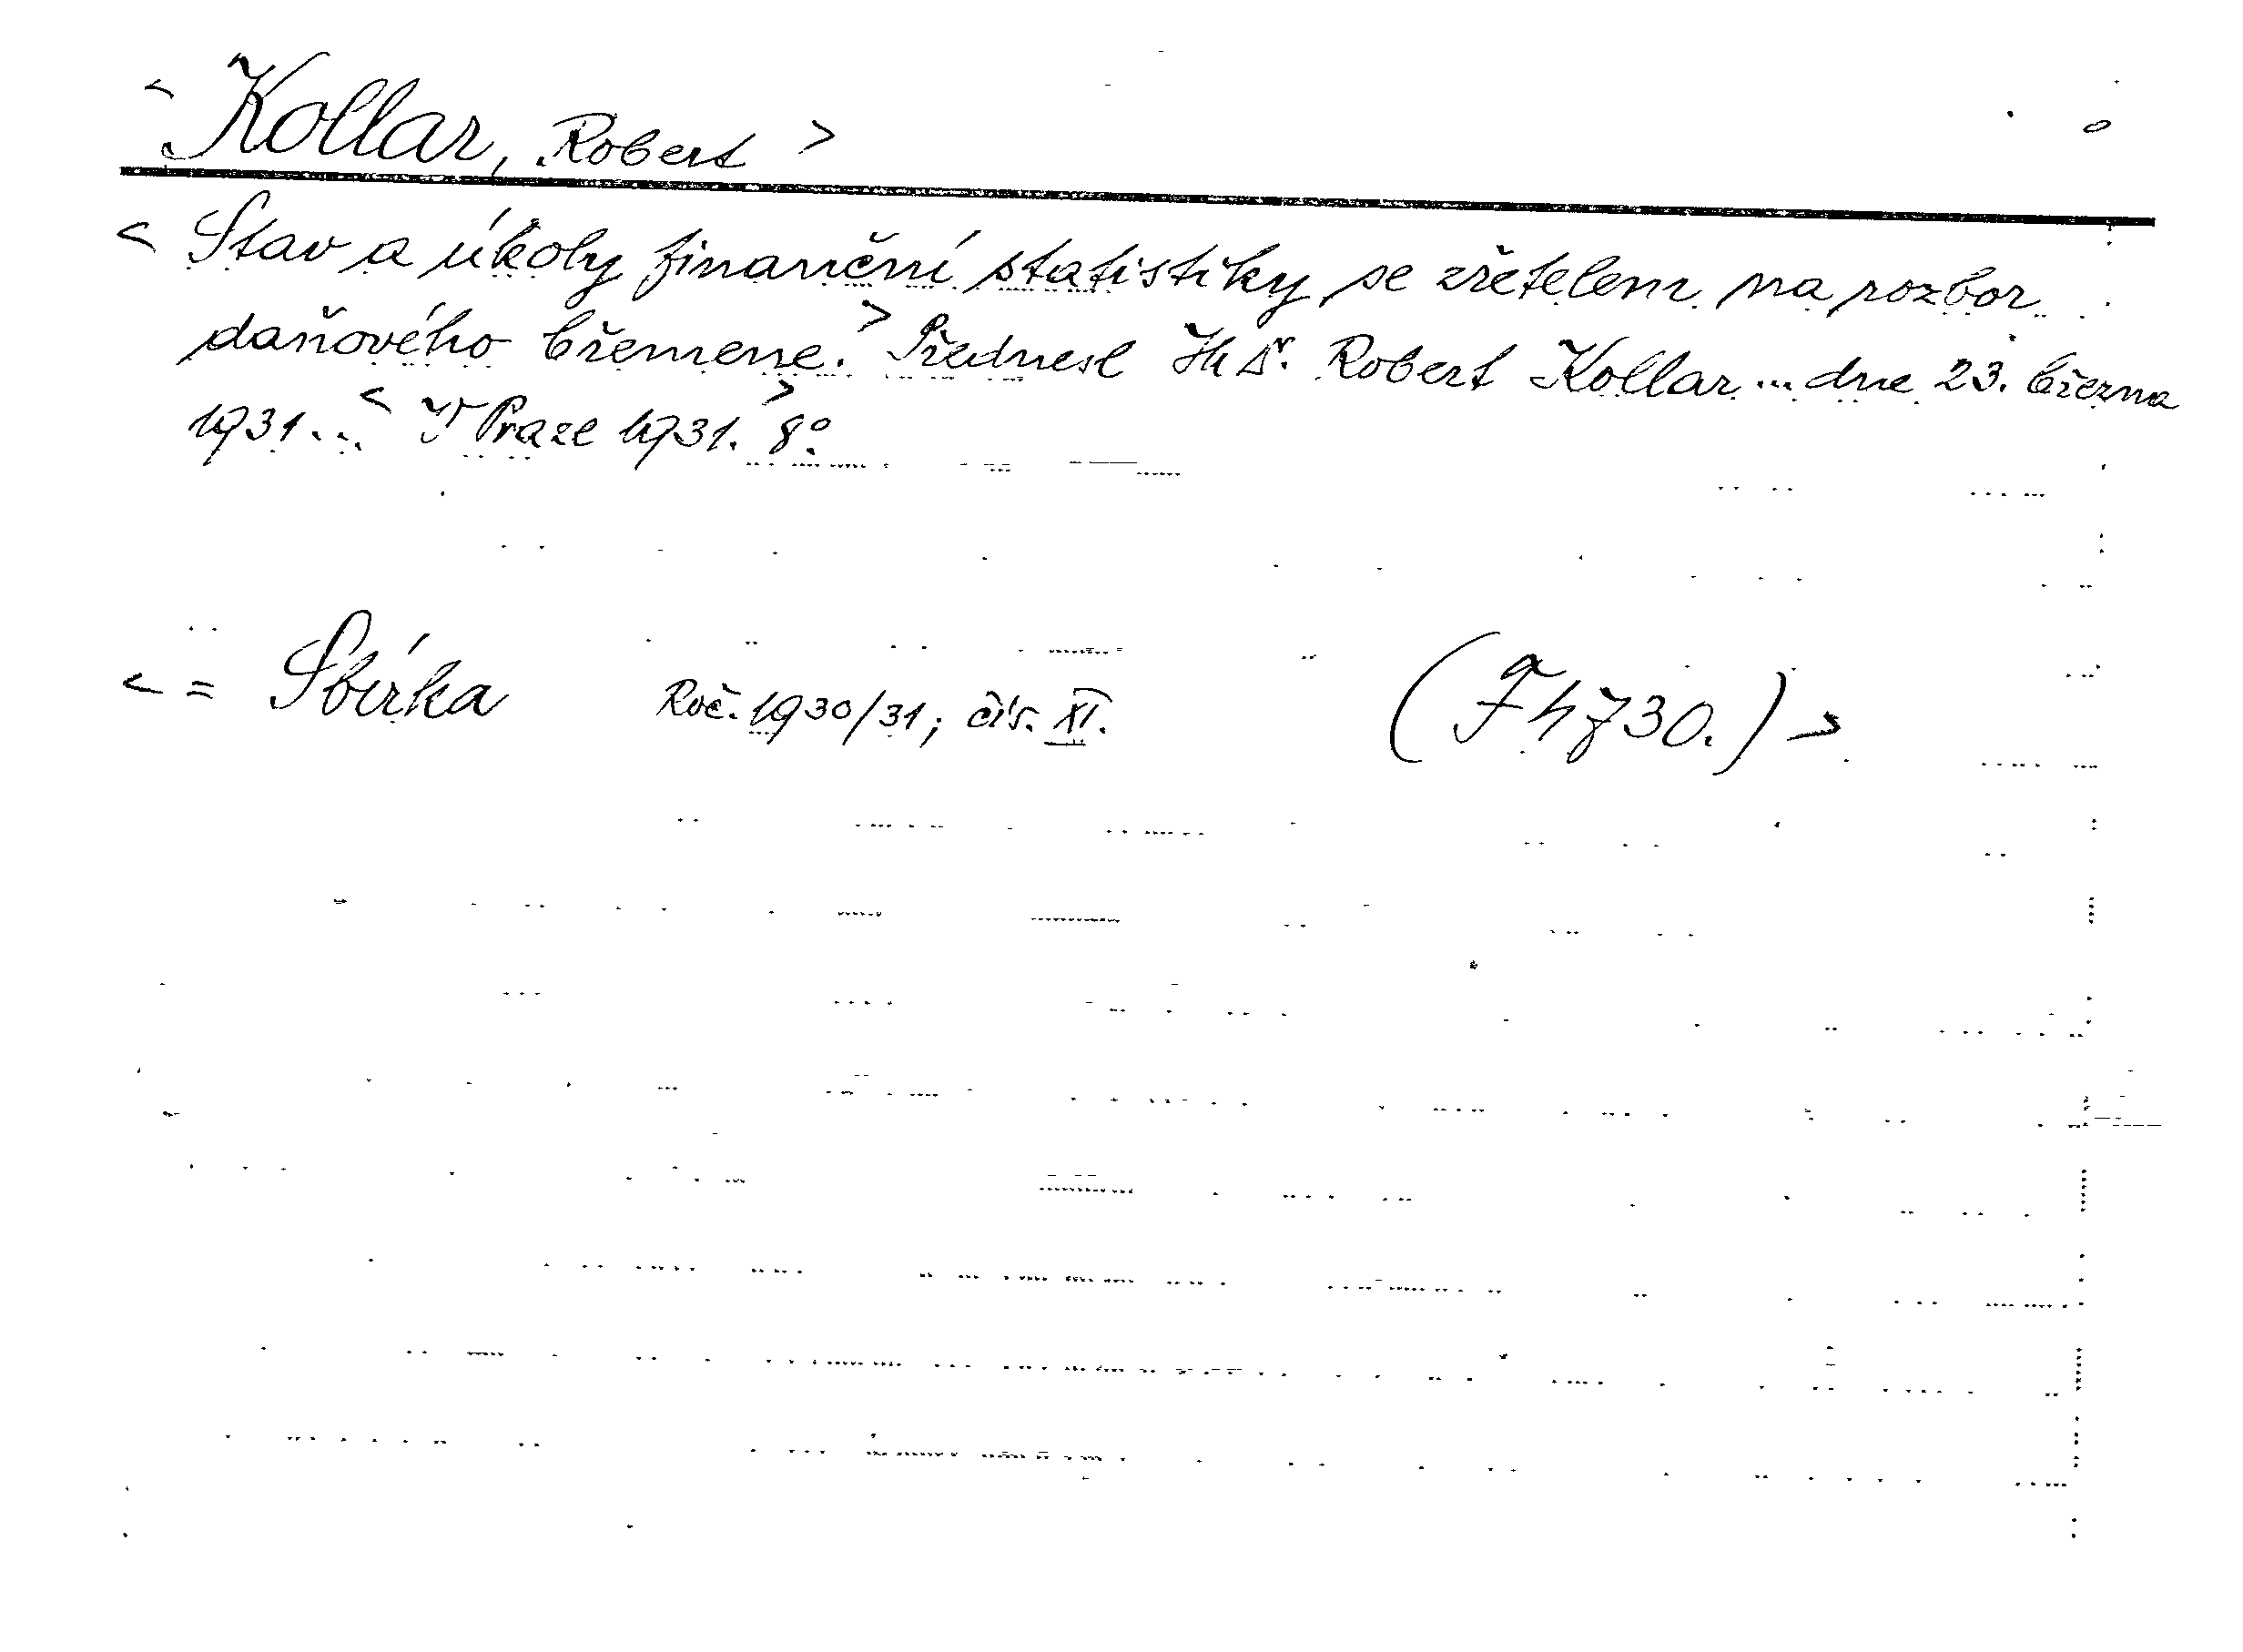 < Kollar, Robert >
< Stav a úkoly finanční statistiky se zřetelem na rozbor
daňového břemene. > Přednesl Dr. Robert Kollar ... dne 23. března
1931 ... < V Praze 1931. > 8°.
< = Sbírka Roč. 1930/31; čís. XI. (F h 730.) >